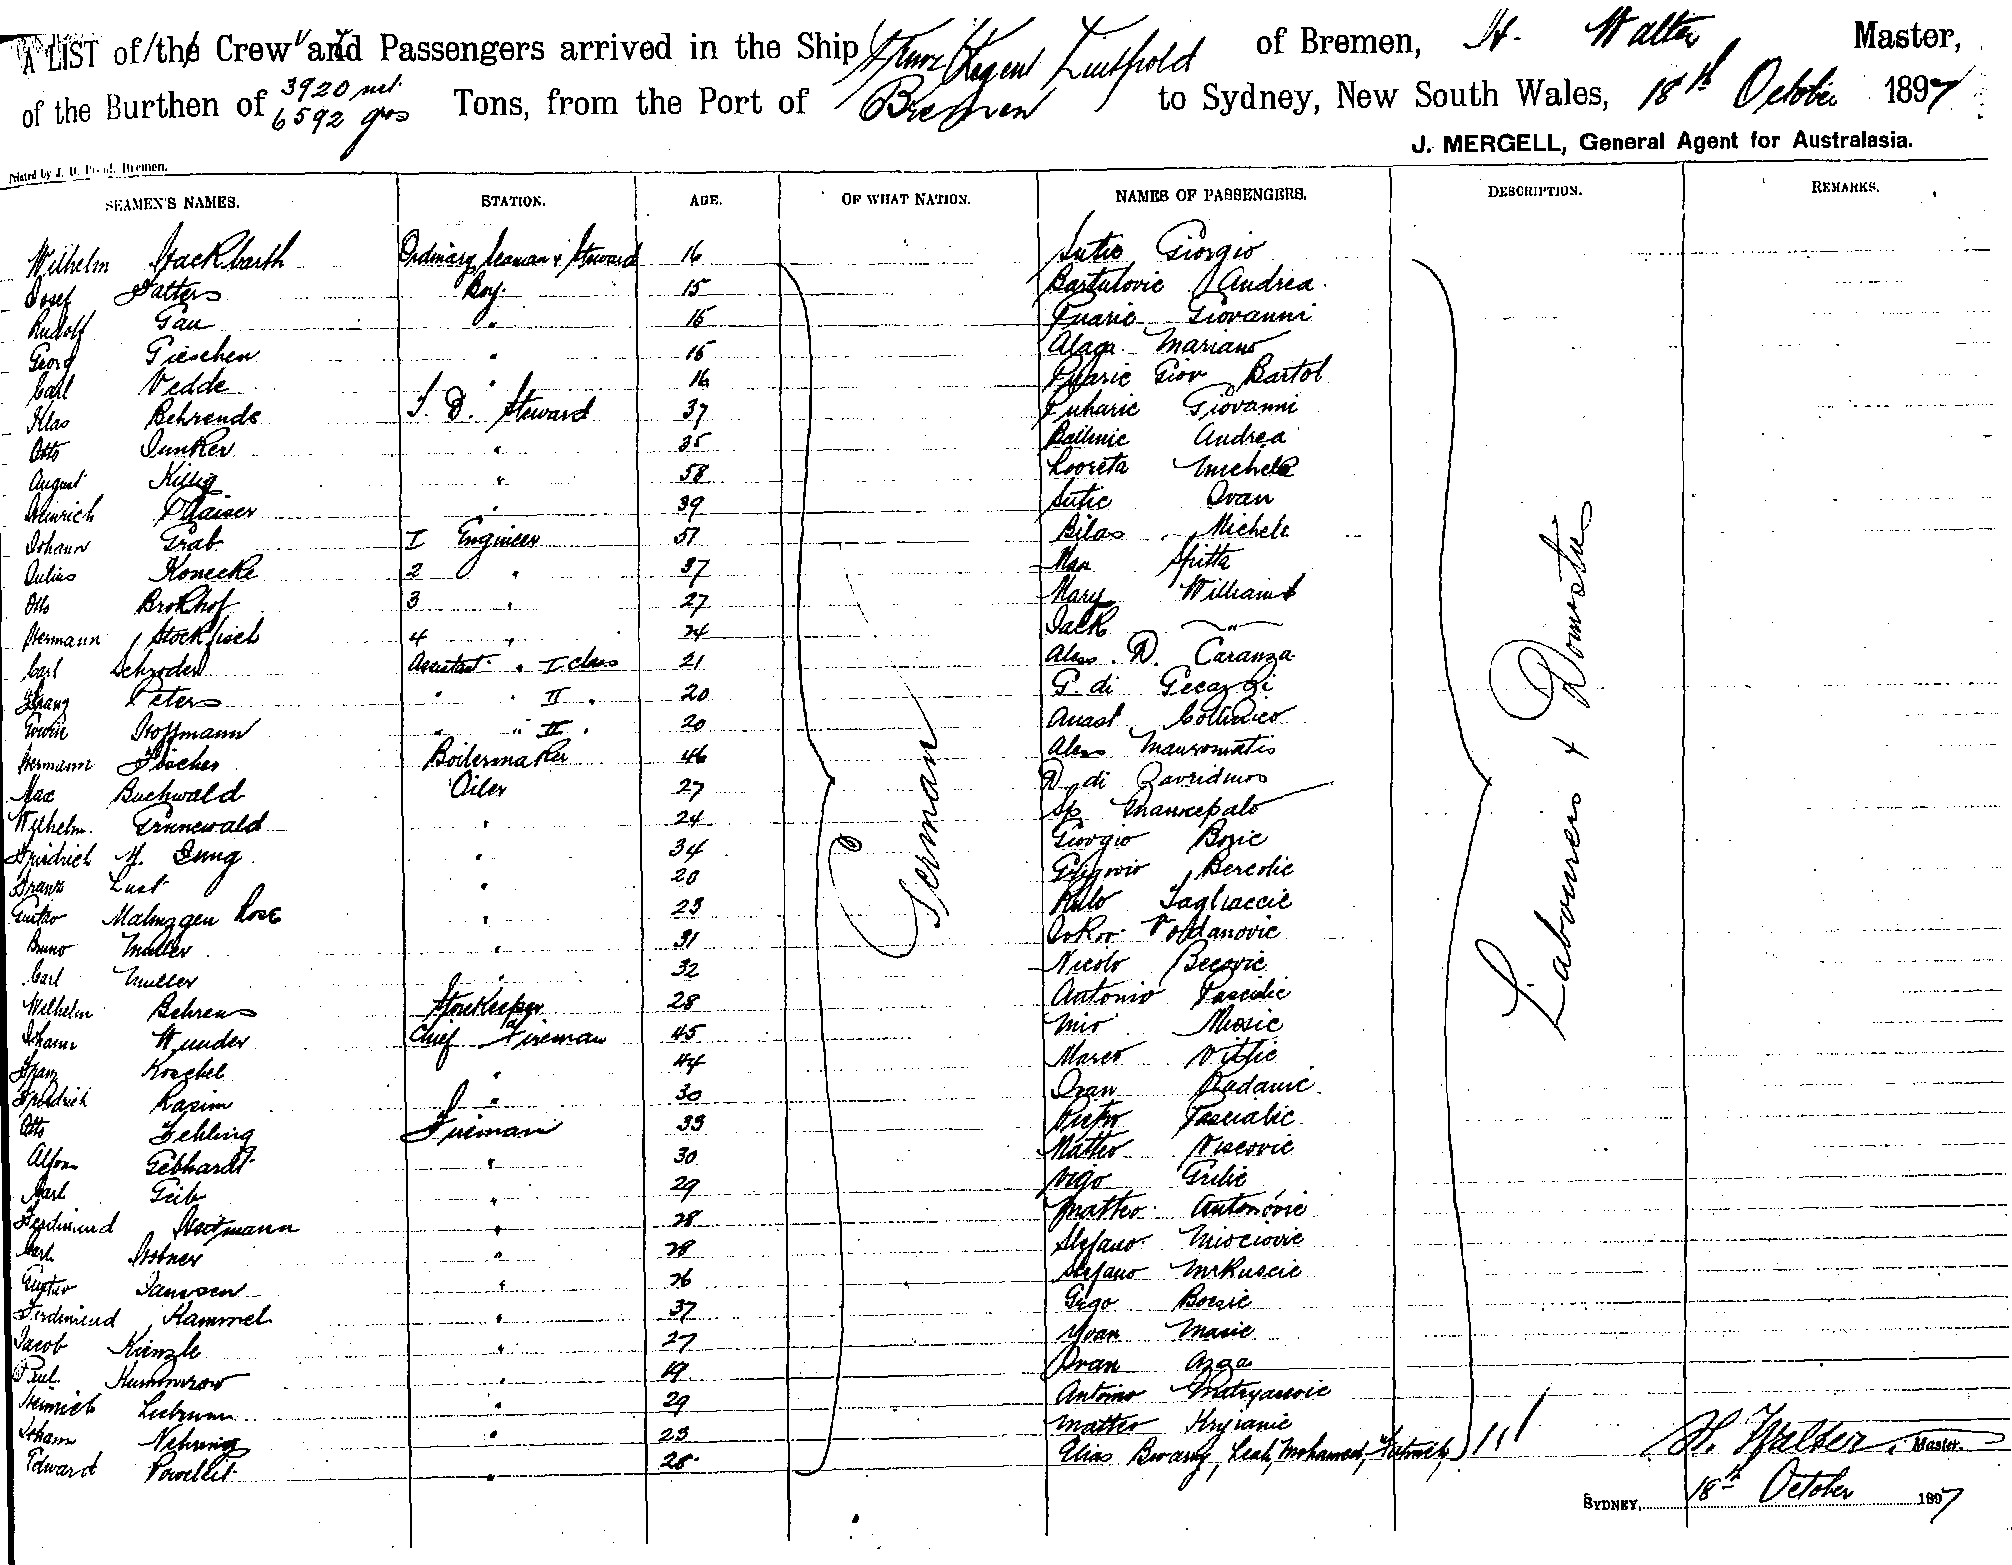 A LIST of the Crew and Passengers arrived in the Ship Prinz Regent Luitpold of Bremen, H. Walter Master,
of the Burthen of 3920 net 6592 gros Tons, from the Port of Bremen to Sydney, New South Wales, 18th October 1897
J. MERGELL, General Agent for Australasia.
Printed by J. Bremen.
SEAMEN'S NAMES. STATION. AGE. OF WHAT NATION. NAMES OF PASSENGERS. DESCRIPTION. REMARKS.
Wilhelm Stackbarth Ordinary Seaman & Steward 16 Sutic Giorgio
Josef Salters Boy. 15 Bartulovic Andrea
Rudolf Gau " 15 Giovanni
Georg Gieschen " 15 Alaga Mariano
Carl Vedde " 16 Giov Bartol
Klas Behrends S. D. Steward 37 Puharic Giovanni
Otto Junker " 35 Andrea
August Killig " 58 Looreta Michele
Heinrich Plaiser " 39 Sutic Ivan
Johann Grab I Engineer 51 Bilas Michele
Julius Konecke 2 " 37 Max Spitta
Otto Brokhof 3 " 27 Mary Williams
Hermann Stockfisch 4 " 24 Jack "
Carl Schroder Assistant " I class 21 Aless. D. Caranza
Franz Peters " " II " 20 G. di
Erwin Hoffmann " " III " 20 Anast
Hermann Fischer Boilermaker 46 Aless Mauromatis
Max Buchwald Oiler 27 D di
Wilhelm Grunewald " 24 Sp
Friedrich H. Jung " 34 Giorgio Bozic
Franz Lust " 20 Bercolic
Gustav Malmzgen Rose " 23 Tagliaccic
Bruno Muller " 31
Carl Muller " 32 Nicolo Becovic
Wilhelm Behrens Storekeeper 28 Antonio Pasculic
Johann Wunder Chief Fireman 45 Mio Miosic
Franz Koschel " 44 Marco Vittic
Friedrich Rasim " 30 Ivan Radanic
Otto Zehling Fireman 33 Pietro Pasculic
Alfons Gebhardt " 30 Matteo Viscovic
Carl Geib " 29 Vigo Grilic
Ferdinand Hartmann " 28 Matteo Antonovic
Carl " 28 Stefano Miociovic
Gustav Janssen " 26 Stefano Mrkuscic
Ferdinand Hammel " 37 Grgo Borsic
Jacob Kienzle " 27 Yvan Masic
Paul Kummrow " 19 Ivan Azga
Heinrich " 29 Antonio Matryasevic
Johann Nehring " 23 Matteo Kryranic
Edward Powellit " 28 Elias Leah, Mohamed,
German
Labourers & Domestics
H. Walter Master.
SYDNEY, 18th October 1897